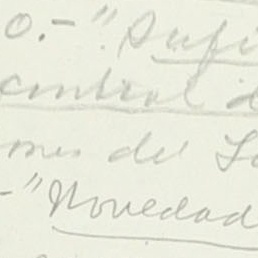 0.- "Sufi
control d
nes de Sa
-" Novedad